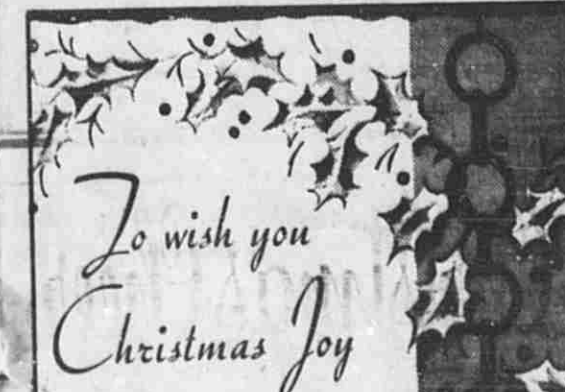 To wish you
Christmas Joy